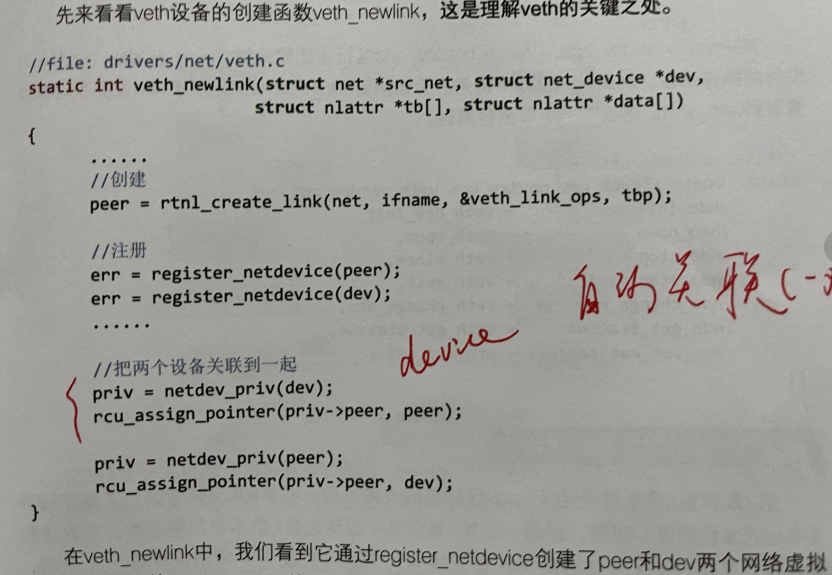 先来看看veth设备的创建函数veth_newlink，这是理解veth的关键之处。
//file: drivers/net/veth.c
static int veth_newlink(struct net *src_net, struct net_device *dev,
struct nlattr *tb[], struct nlattr *data[])
{
......
//创建
peer = rtnl_create_link(net, ifname, &veth_link_ops, tbp);
//注册
err = register_netdevice(peer);
err = register_netdevice(dev);
......
关联(一
device
//把两个设备关联到一起
priv = netdev_priv(dev);
rcu_assign_pointer(priv->peer, peer);
priv = netdev_priv(peer);
rcu_assign_pointer(priv->peer, dev);
}
在veth_newlink中，我们看到它通过register_netdevice创建了peer和dev两个网络虚拟